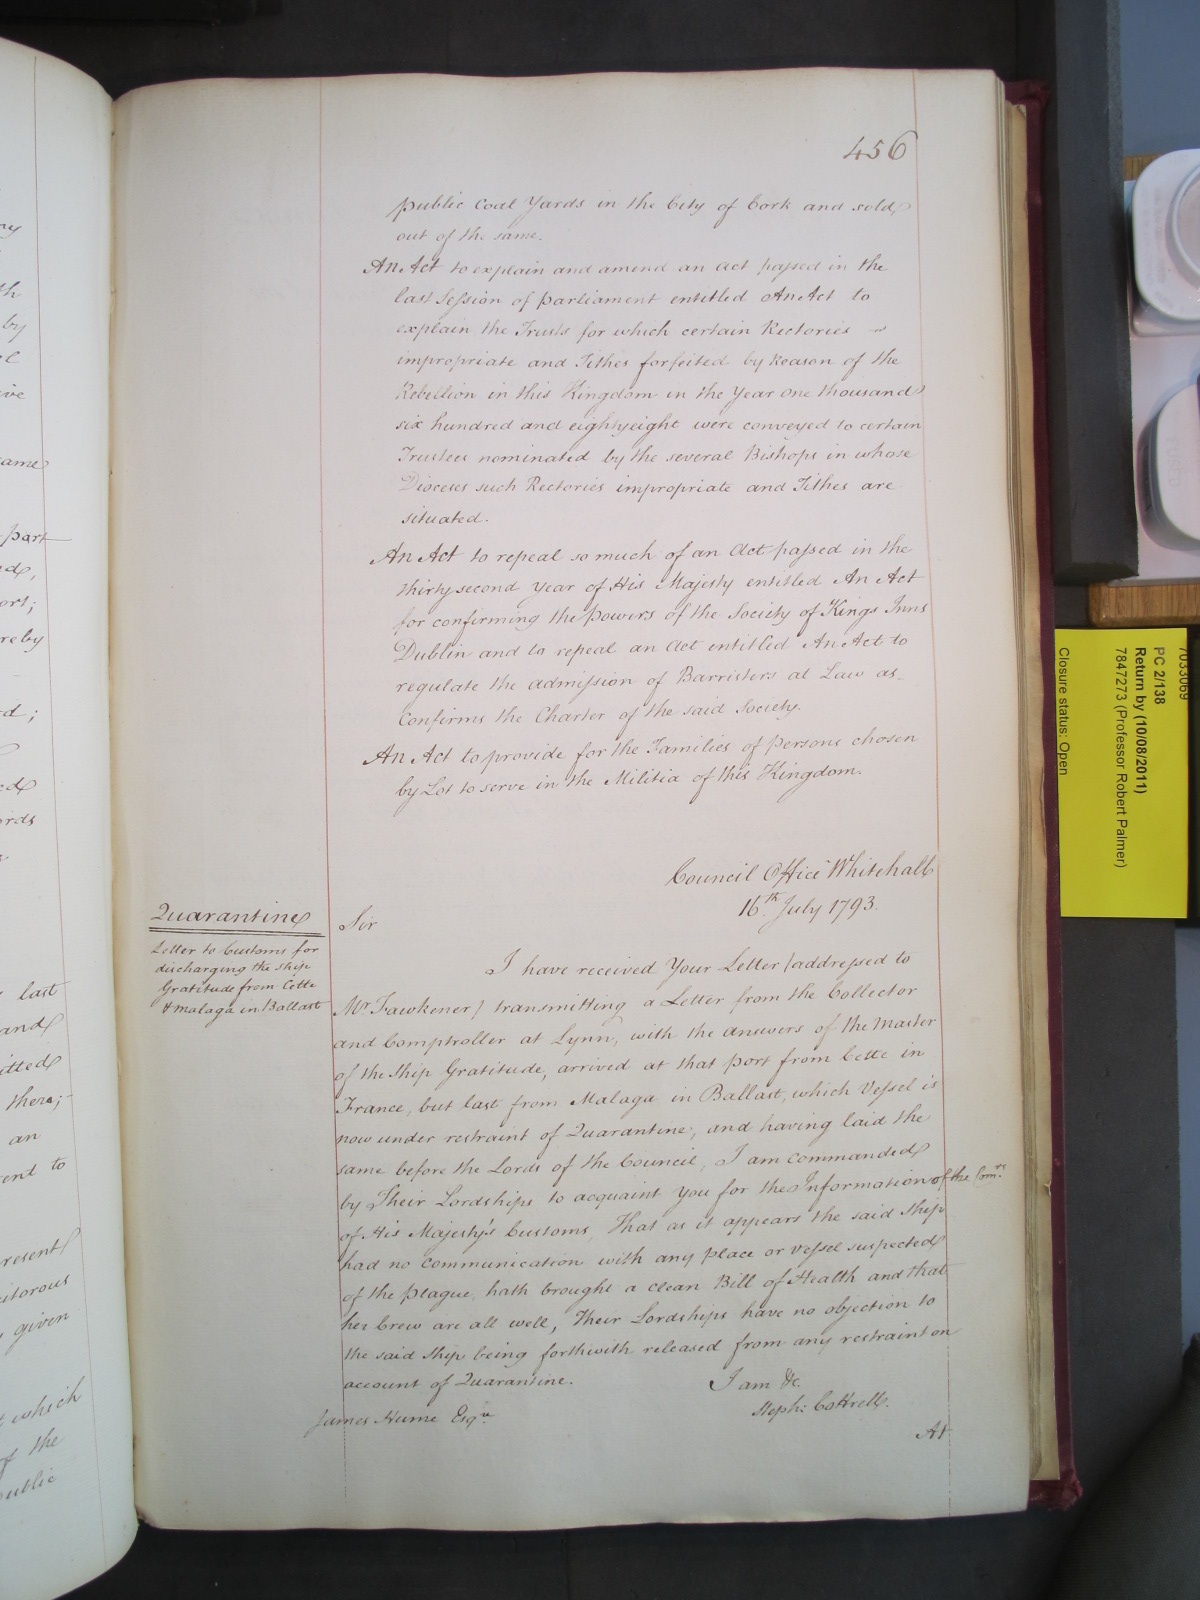 456
public Coal Yards in the City of Cork and sold
out of the same.
An Act to explain and amend an Act passed in the
last Session of parliament entitled An Act to
explain the Trusts for which certain Rectories
impropriate and Tithes forfeited by Reason of the
Rebellion in this Kingdom in the Year One thousand
six hundred and eightyeight were conveyed to certain
Trustees nominated by the several Bishops in whose
Dioceses such Rectories impropriate and Tithes are
situated.
An Act to repeal so much of an Act passed in the
thirty second Year of His Majesty entitled An Act
for confirming the powers of the Society of Kings Inns
Dublin and to repeal an Act entitled An Act to
regulate the admission of Barristers at Law as
Confirms the Charter of the said Society.
An Act to provide for the Families of persons chosen
by Lot to serve in the Militia of this Kingdom.
Council Office Whitehall
16th July 1793.
Quarantine
Letter to Customs for
discharging the ship
Gratitude from Cette
& Malaga in Ballast
Sir
I have received Your Letter (addressed to
Mr Fawkener) transmitting a Letter from the Collector
and Comptroller at Lynn, with the Answers of the Master
of the Ship Gratitude, arrived at that port from Cette in
France, but last from Malaga in Ballast, which Vessel is
now under restraint of Quarantine; and having laid the
same before the Lords of the Council, I am commanded
by Their Lordships to acquaint You for the Information of the Comrs
of His Majesty's Customs, That as it appears the said Ship
had no communication with any place or vessel suspected
of the plague, hath brought a clean Bill of Health and that
her Crew are all well, Their Lordships have no objection to
the said Ship being forthwith released from any restraint on
account of Quarantine.
I am &c.
Steph: Cottrell.
James Hume Esqre
At
7033069
PC 2/138
Return by (10/08/2011)
7847273 (Professor Robert Palmer)
Closure status: Open
ny
th
by
ive
same
part
ed,
ort;
reby
rd;
ed
ords
last
and
itted
there;
an
ent to
resent
itorous
given
which
of the
public